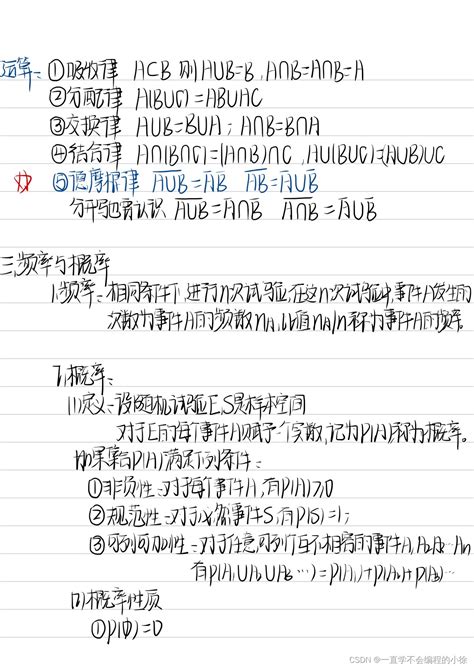 运算: ①吸收律 A⊂B 则A∪B=B, A∩B=A∩B=A
②分配律 A(B∪C)=AB∪AC
③交换律 A∪B=B∪A; A∩B=B∩A
④结合律 A∩(B∩C)=(A∩B)∩C, A∪(B∪C)=(A∪B)∪C
☆ ⑤德摩根律 A̅∪̅B̅=A̅B̅ A̅B̅=A̅∪B̅
分开也需认识 A̅∪̅B̅=A̅∩B̅ A̅∩̅B̅=A̅∪B̅
三.频率与概率
1.频率: 相同条件下,进行n次试验,在这n次试验中,事件A发生的
次数为事件A的频数nA,比值nA/n称为事件A的频率.
2.概率:
(1)定义: 设随机试验E,S是样本空间
对于E的每个事件A赋予一个实数,记为P(A)称为概率。
如果集合P(A)满足下列条件:
①非负性:对于每个事件A,有P(A)≥0
②规范性:对于必然事件S,有p(S)=1;
③可列可加性:对于任意可列个互不相容的事件A₁A₂…An
有p(A₁∪A₂∪A₃…)=p(A₁)+p(A₂)+p(A₃)…
(2)概率性质
①p(Φ)=0
CSDN @一直学不会编程的小徐